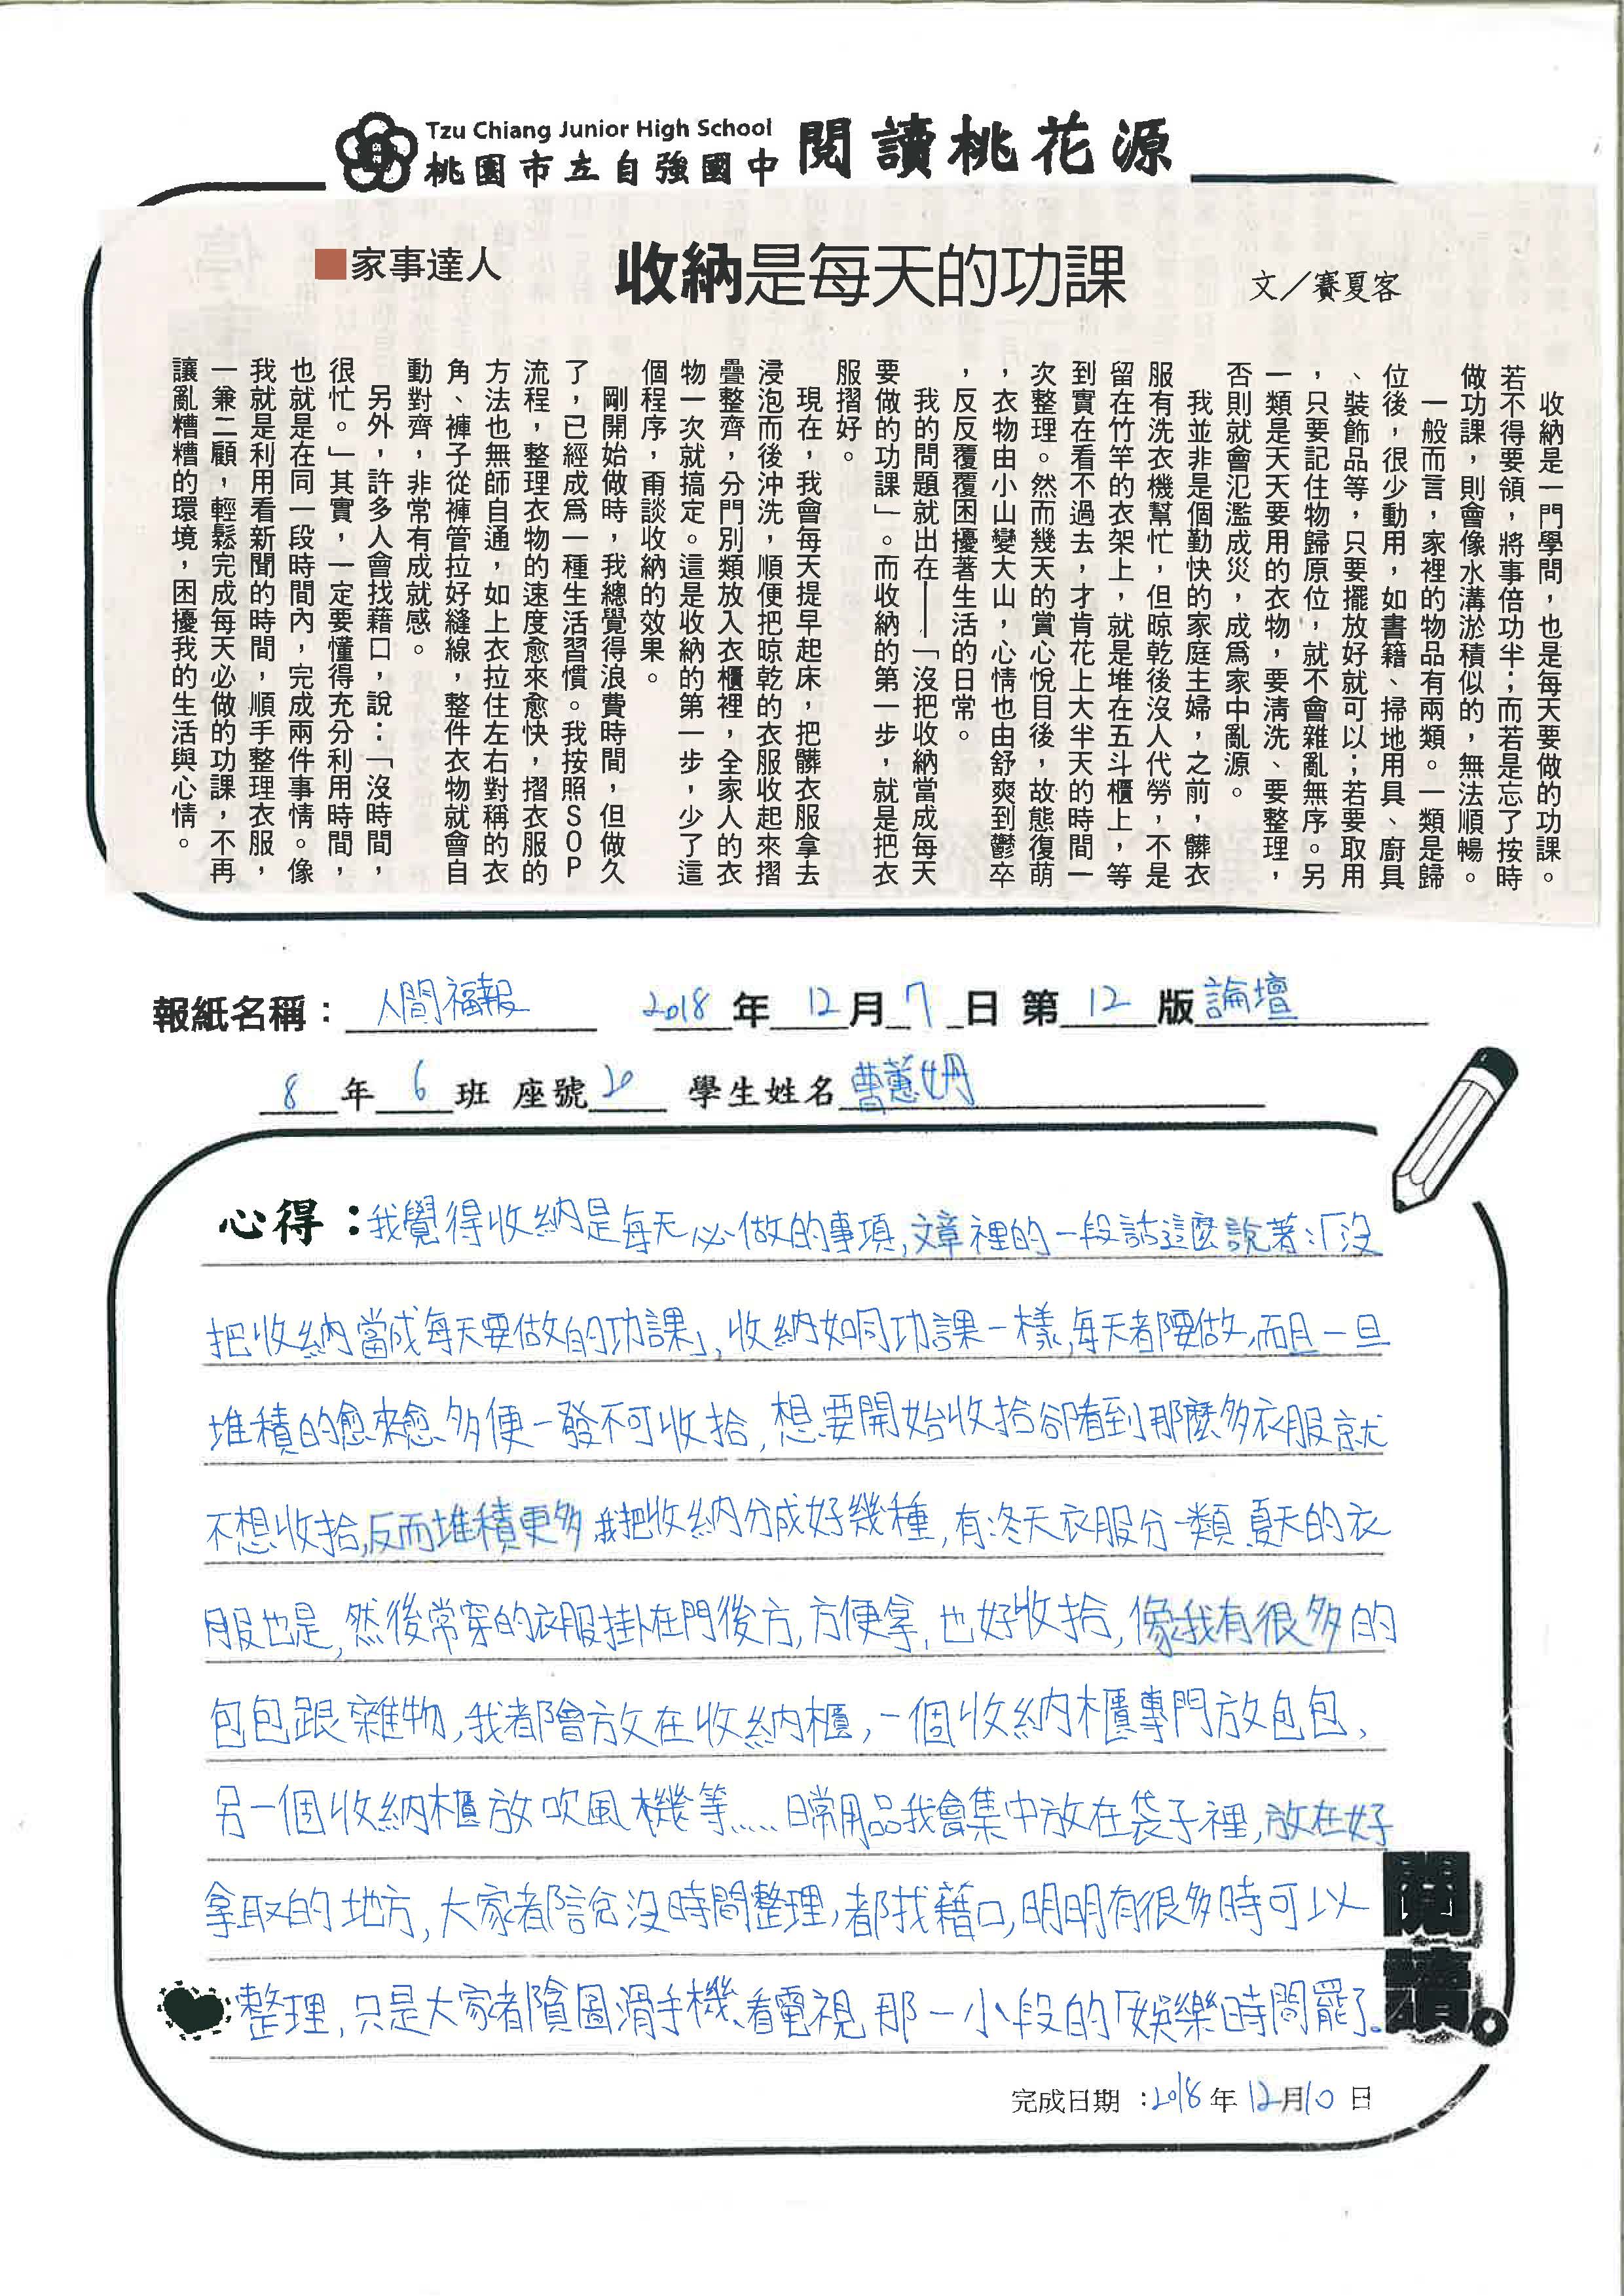 Tzu Chiang Junior High School
桃園市立自強國中
閱讀桃花源
■家事達人
收納是每天的功課
文／賽夏客
收納是一門學問，也是每天要做的功課。
若不得要領，將事倍功半；而若是忘了按時
做功課，則會像水溝淤積似的，無法順暢。
一般而言，家裡的物品有兩類。一類是歸
位後，很少動用，如書籍、掃地用具、廚具
、裝飾品等，只要擺放好就可以；若要取用
，只要記住物歸原位，就不會雜亂無序。另
一類是天天要用的衣物，要清洗、要整理，
否則就會氾濫成災，成為家中亂源。
我並非是個勤快的家庭主婦，之前，髒衣
服有洗衣機幫忙，但晾乾後沒人代勞，不是
留在竹竿的衣架上，就是堆在五斗櫃上，等
到實在看不過去，才肯花上大半天的時間一
次整理。然而幾天的賞心悅目後，故態復萌
，衣物由小山變大山，心情也由舒爽到鬱卒
，反反覆覆困擾著生活的日常。
我的問題就出在——「沒把收納當成每天
要做的功課」。而收納的第一步，就是把衣
服摺好。
現在，我會每天提早起床，把髒衣服拿去
浸泡而後沖洗，順便把晾乾的衣服收起來摺
疊整齊，分門別類放入衣櫃裡，全家人的衣
物一次就搞定。這是收納的第一步，少了這
個程序，甭談收納的效果。
剛開始做時，我總覺得浪費時間，但做久
了，已經成為一種生活習慣。我按照SOP
流程，整理衣物的速度愈來愈快，摺衣服的
方法也無師自通，如上衣拉住左右對稱的衣
角、褲子從褲管拉好縫線，整件衣物就會自
動對齊，非常有成就感。
另外，許多人會找藉口，說：「沒時間，
很忙。」其實，一定要懂得充分利用時間，
也就是在同一段時間內，完成兩件事情。像
我就是利用看新聞的時間，順手整理衣服，
一兼二顧，輕鬆完成每天必做的功課，不再
讓亂糟糟的環境，困擾我的生活與心情。
報紙名稱：人間福報 2018年12月7日第12版論壇
8年6班 座號20 學生姓名曹蕙姍
心得：我覺得收納是每天必做的事項，文章裡的一段話這麼說著：「沒
把收納當成每天要做的功課」，收納如同功課一樣，每天都要做，而且一旦
堆積的愈來愈多便一發不可收拾，想要開始收拾卻看到那麼多衣服就
不想收拾，反而堆積更多，我把收納分成好幾種，有冬天衣服分一類，夏天的衣
服也是，然後常穿的衣服掛在門後方，方便拿，也好收拾，像我有很多的
包包跟雜物，我都會放在收納櫃，一個收納櫃專門放包包，
另一個收納櫃放吹風機等……日常用品我會集中放在袋子裡，放在好
拿取的地方，大家都說沒時間整理，都找藉口，明明有很多時可以
整理，只是大家都貪圖滑手機、看電視，那一小段的「娛樂時間罷了。
閱讀。
完成日期：2018年12月10日